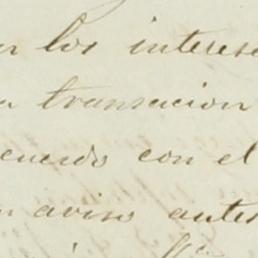 los interese
transacion
cuerdo con el
aviso antes